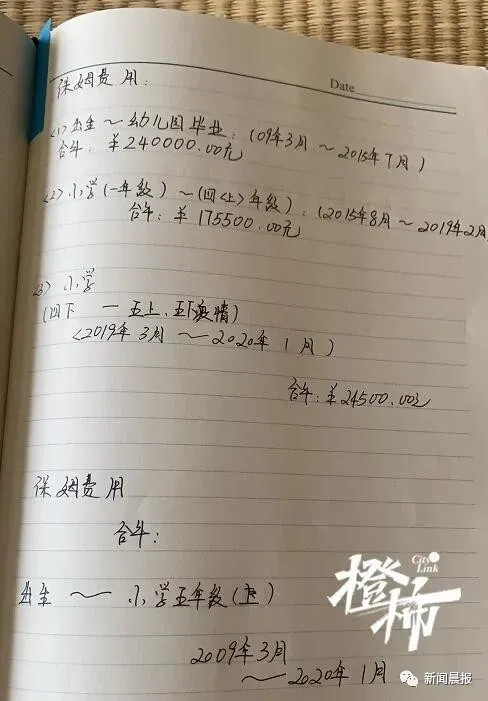 Date
保姆费用：
<1>出生～幼儿园毕业：(09年3月～2015年7月)
合计：￥240000.00元
<2>小学(一年级)～(四<上>年级)：(2015年8月～2019年2月
合计：￥175500.00元
<3>小学
(四下 — 五上、五下疫情)
<2019年3月～2020年1月)
合计：￥24500.00元
保姆费用
合计：
出生～小学五年级(上)
2009年3月
～2020年1月
City Link
橙柿
新闻晨报